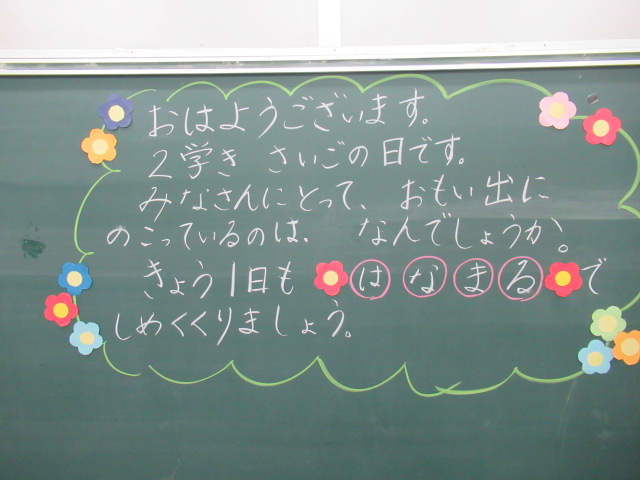 おはようございます。
2学き さいごの日です。
みなさんにとって、おもい出に
のこっているのは、なんでしょうか。
きょう1日も はなまる で
しめくくりましょう。